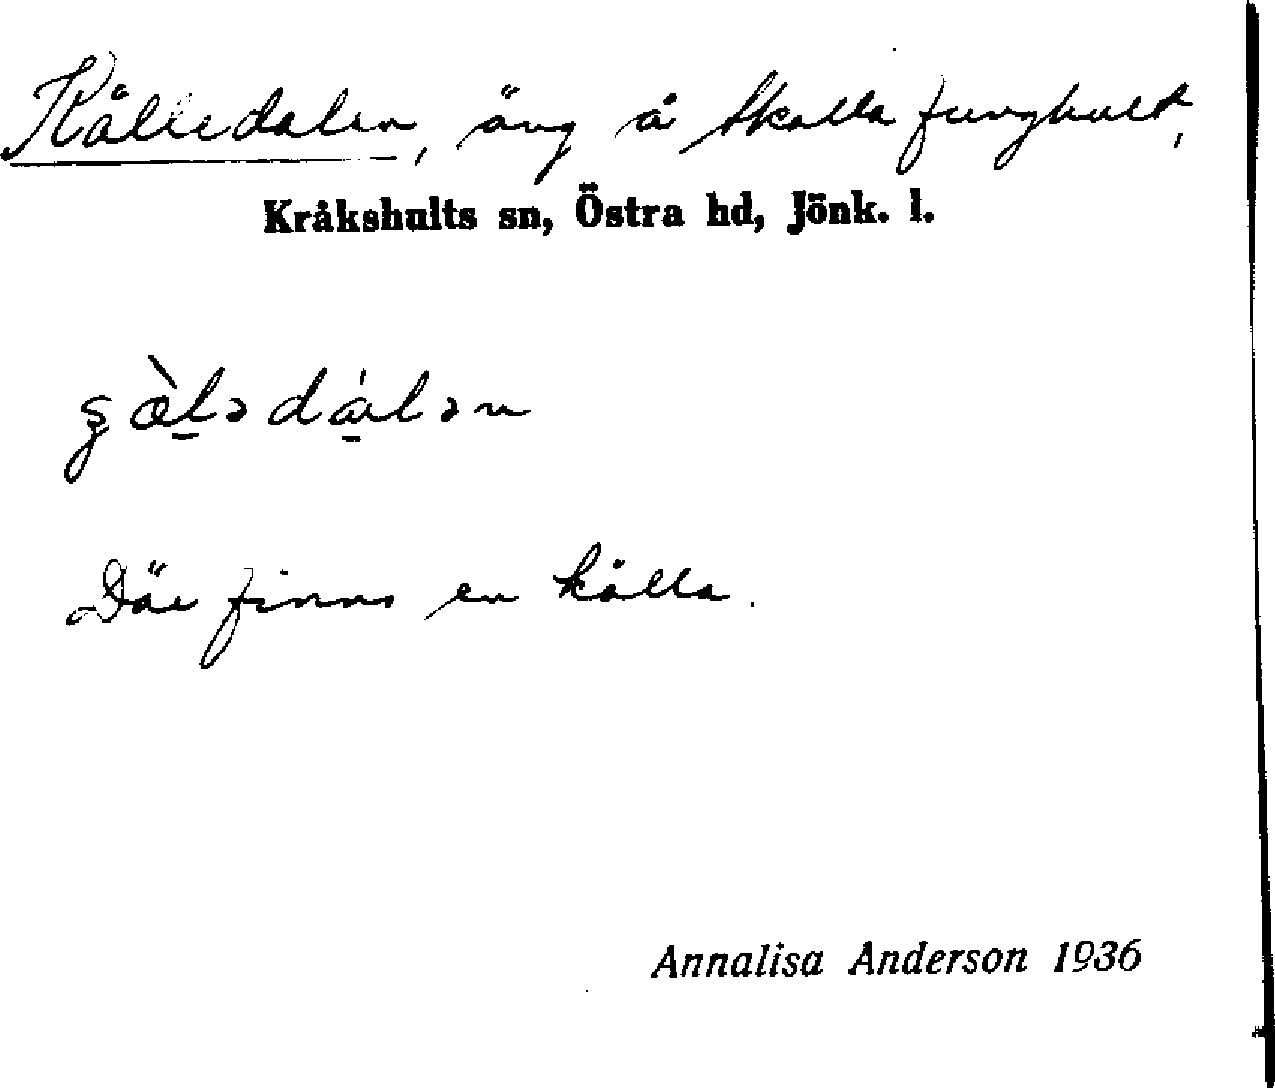 Källedalen, äng å Skalla Junghult,
Kråkshults sn, Östra hd, Jönk. l.
Där finns en källa.
Annalisa Anderson 1936